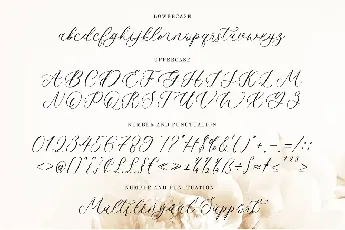 LOWERCASE
abcdefghijklmnopqrstuvwxyz
UPPERCASE
ABCDEFGHIJKLM
NOPQRSTUVWXYZ
NUMBER AND PUNCTUATION
0123456789
NUMBER AND PUNCTUATION
Multilingual Support